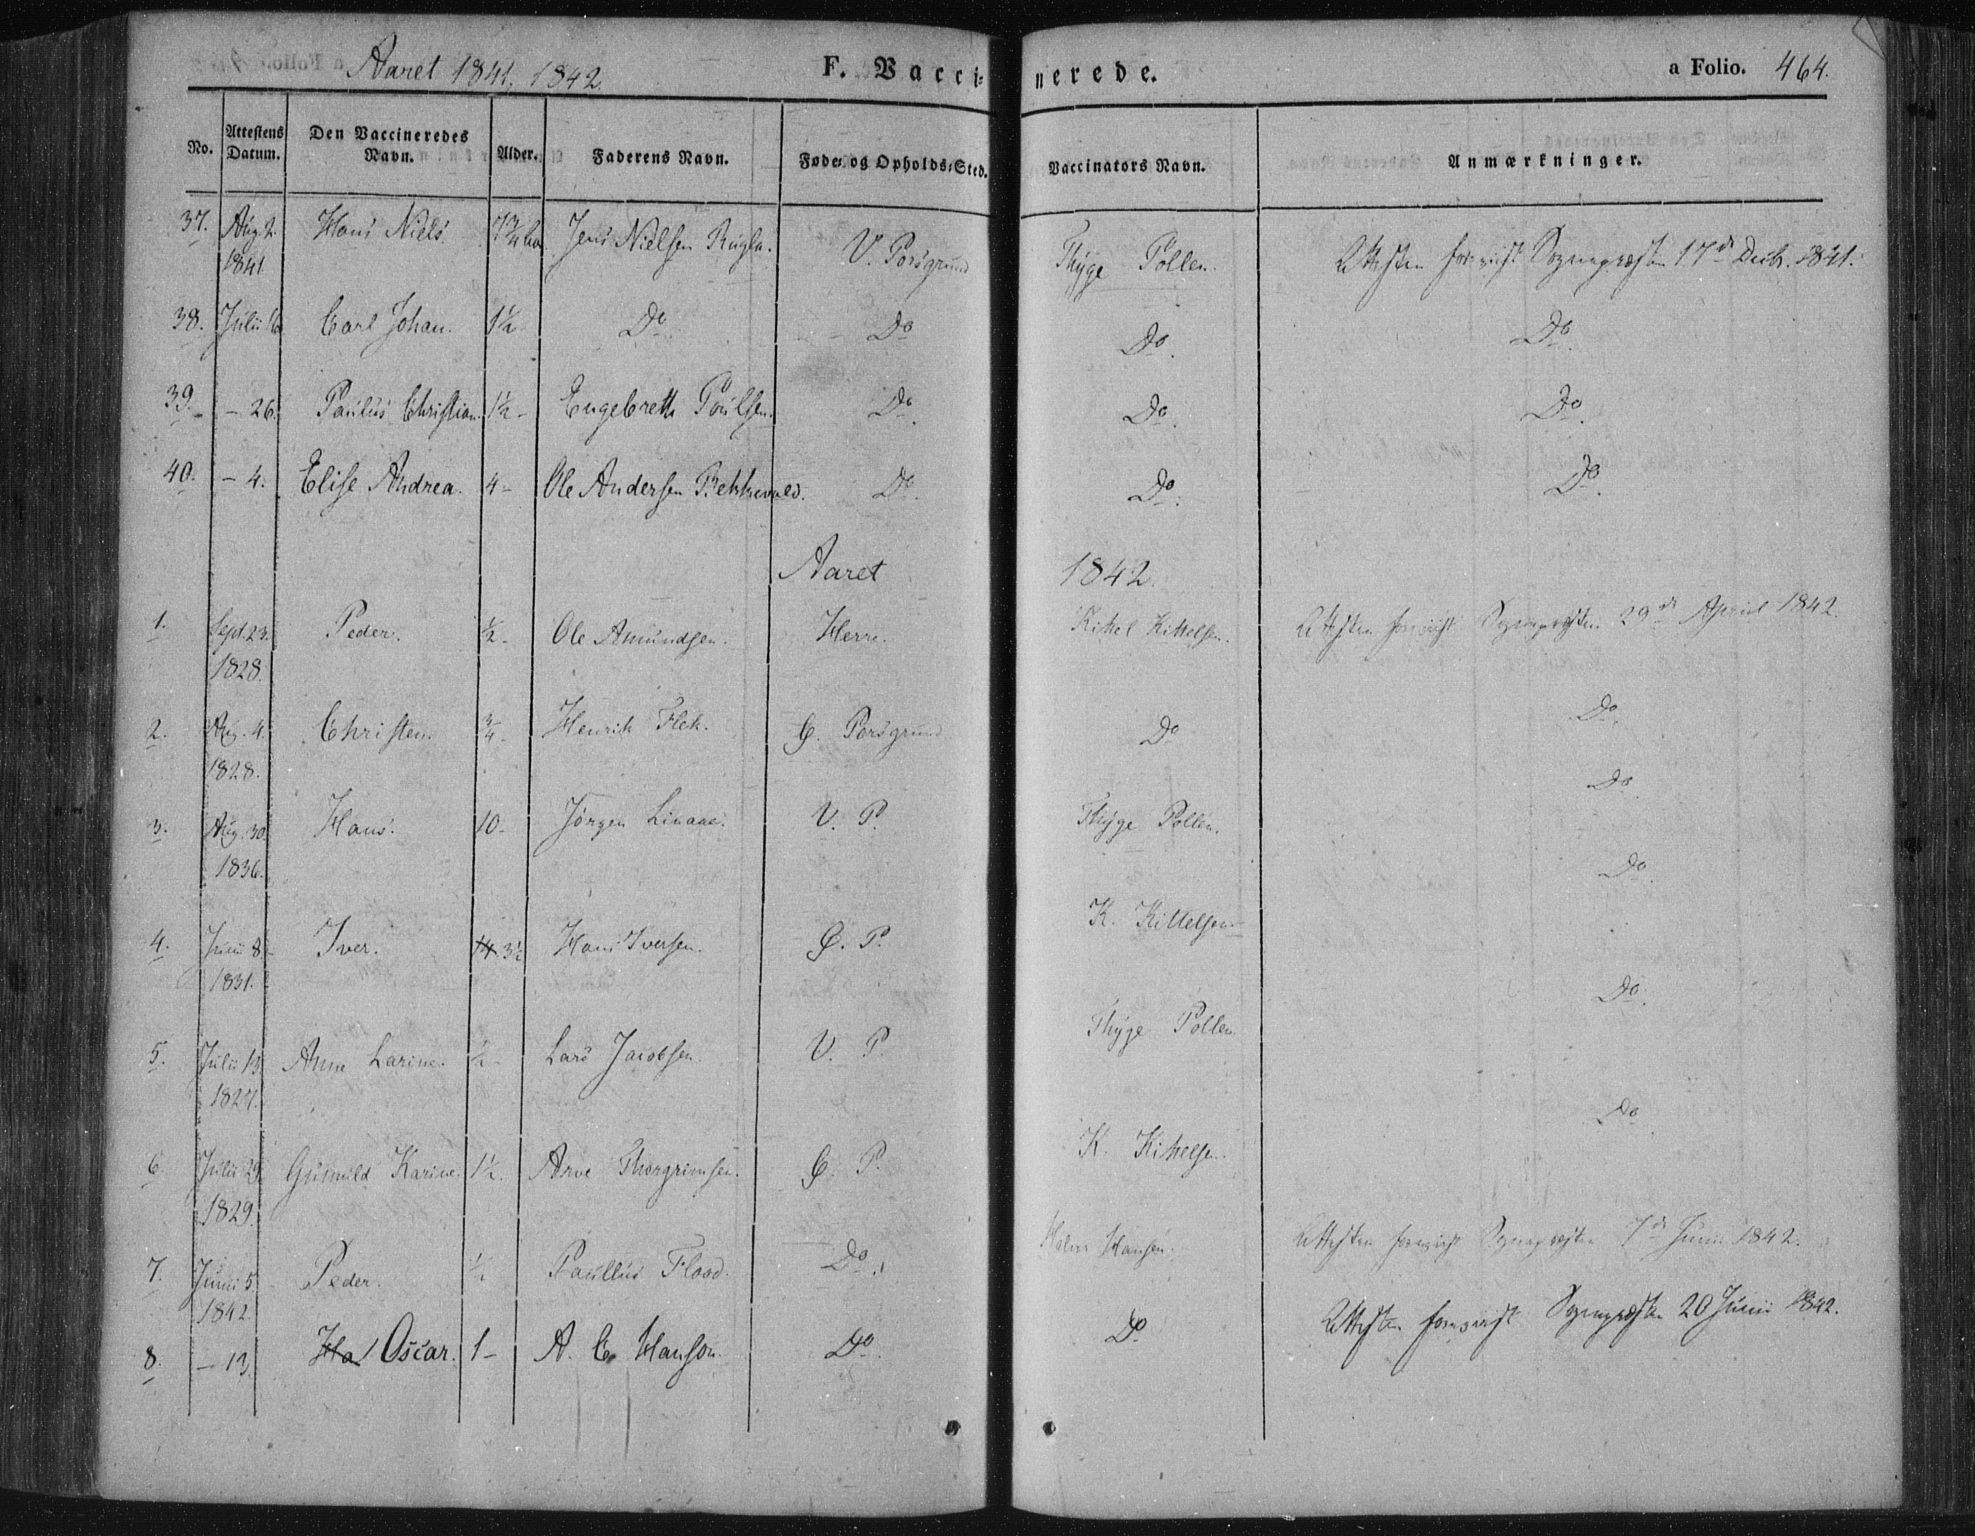 Aaret 1841, 1842. F. Vaccinerede. a Folio. 464.
No. | Attestens Datum. | Den Vaccineredes Navn. | Alder. | Faderens Navn. | Føde- og Opholds-Sted. | Vaccinators Navn. | Anmærkninger.
37. | Aug 2. 1841. | Hans Niels | | Jens Nielsen | V. Porsgrund | Thyge Pollen. | Attesten foreviist Sognepræsten 17de Decb. 1841.
38. | Julii 16 | Carl Johan. | 1½ | Do | Do | Do. | Do.
39. | – 26. | Paulus Christian. | 1½ – | Engebreth Poulsen. | Do. | Do. | Do.
40. | – 4. | Elise Andrea. | 4 – | Ole Andersen | Do. | Do. | Do.
Aaret 1842.
1. | Sept. 23. 1828. | Peder. | ½ – | Ole Amundsen. | Herre. | Kittel Kittelsen. | Attesten foreviist Sognepræsten 29de April 1842
2. | Aug. 4. 1828. | Christen. | ¾ – | Henrik Flek. | Ø. Porsgrund | Do | Do.
3. | Aug. 30. 1836. | Hans. | 10 – | Jörgen Linaae. | V. P. | Thyge Pollen. | Do.
4. | Junii 8 – 1831. | Iver. | 3½ | Hans Iversen. | Ø. P. | K. Kittelsen. | Do.
5. | Julii 13 1827. | Anne Larine. | ½ – | Lars Jacobsen. | V. P. | Thyge Pollen | Do.
6. | Julii 1829. | Gunnild Karine. | 1½. | Arve Thorgrimsen. | Ø. P. | K. Kittelsen. | Do
7. | Junii 5 1842 | Peder. | ½ | Paullus Flood. | Do. | Hansen. | Attesten foreviist Sognepræsten 7de Junii 1842.
8. | – 13. | Ha Oscar. | 1 – | A. C. Hanson. | Do. | Do | Attesten foreviist Sognepræsten 20 Junii 1842.